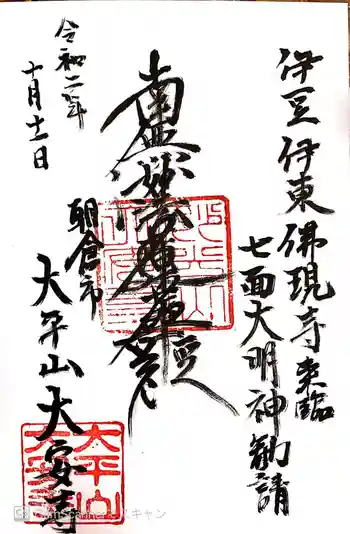 伊豆伊東佛現寺来臨
七面大明神勧請
南無妙法蓮華経
朝倉市
大平山大安寺
令和二年
十月十一日
大平山
スキャン